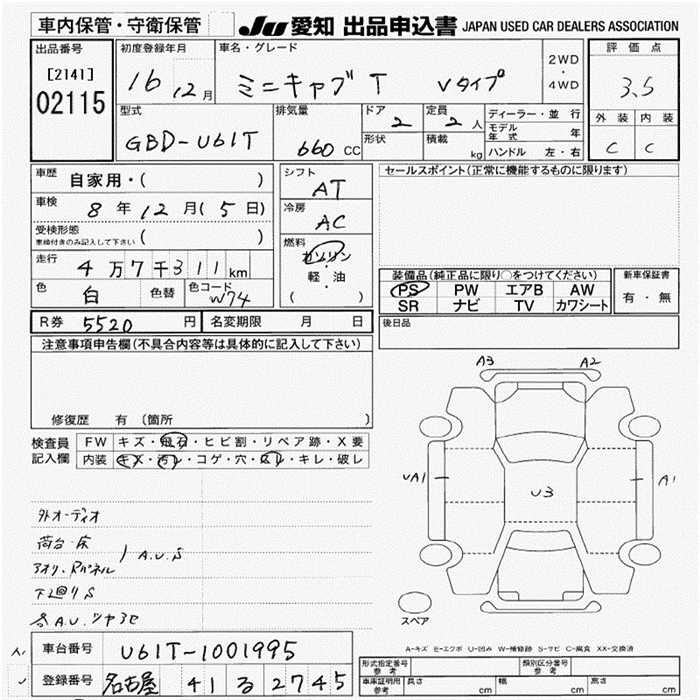 車内保管・守衛保管
JU 愛知 出品申込書 JAPAN USED CAR DEALERS ASSOCIATION
出品番号 [2141] 02115
初度登録年月 16 12月
車名・グレード ミニキャブT Vタイプ
2WD・4WD
評価点 3.5
外装 内装
C C
型式 GBD-U61T
排気量 660CC
ドア 2
定員 2人
形状
積載 kg
ディーラー・並行
モデル年式 年
ハンドル 左・右
車歴 自家用・( )
車検 8年12月(5日)
受検形態 車検付きのみ記入して下さい ( )
走行 4万7千311km
色 白 色替 色コード W74
シフト AT
冷房 AC
燃料 ガソリン・軽油 ( )
セールスポイント(正常に機能するものに限ります)
装備品(純正品に限り○をつけてください)
PS PW エアB AW
SR ナビ TV カワシート
新車保証書 有・無
R券 5520円 名変期限 月 日
後日品
注意事項申告欄(不具合内容等は具体的に記入して下さい)
修復歴 有 (箇所 )
検査員記入欄
FW キズ・飛石・ヒビ割・リペア跡・X要
内装 キズ・汚レ・コゲ・穴・スレ・キレ・破レ
A3 A2
UA1 U3 A1
外オーディオ
荷台・床
アオリ・Rパネル } A.U.S
下廻りS
各A.U.ツヤ3セ
スペア
A-キズ E-エクボ U-凹み W-補修跡 S-サビ C-腐食 XX-交換済
車台番号 U61T-1001995
登録番号 名古屋 41 る 2745
形式指定番号 参考
類別区分番号 参考
車庫証明用 参考 長さ cm 幅 cm 高さ cm